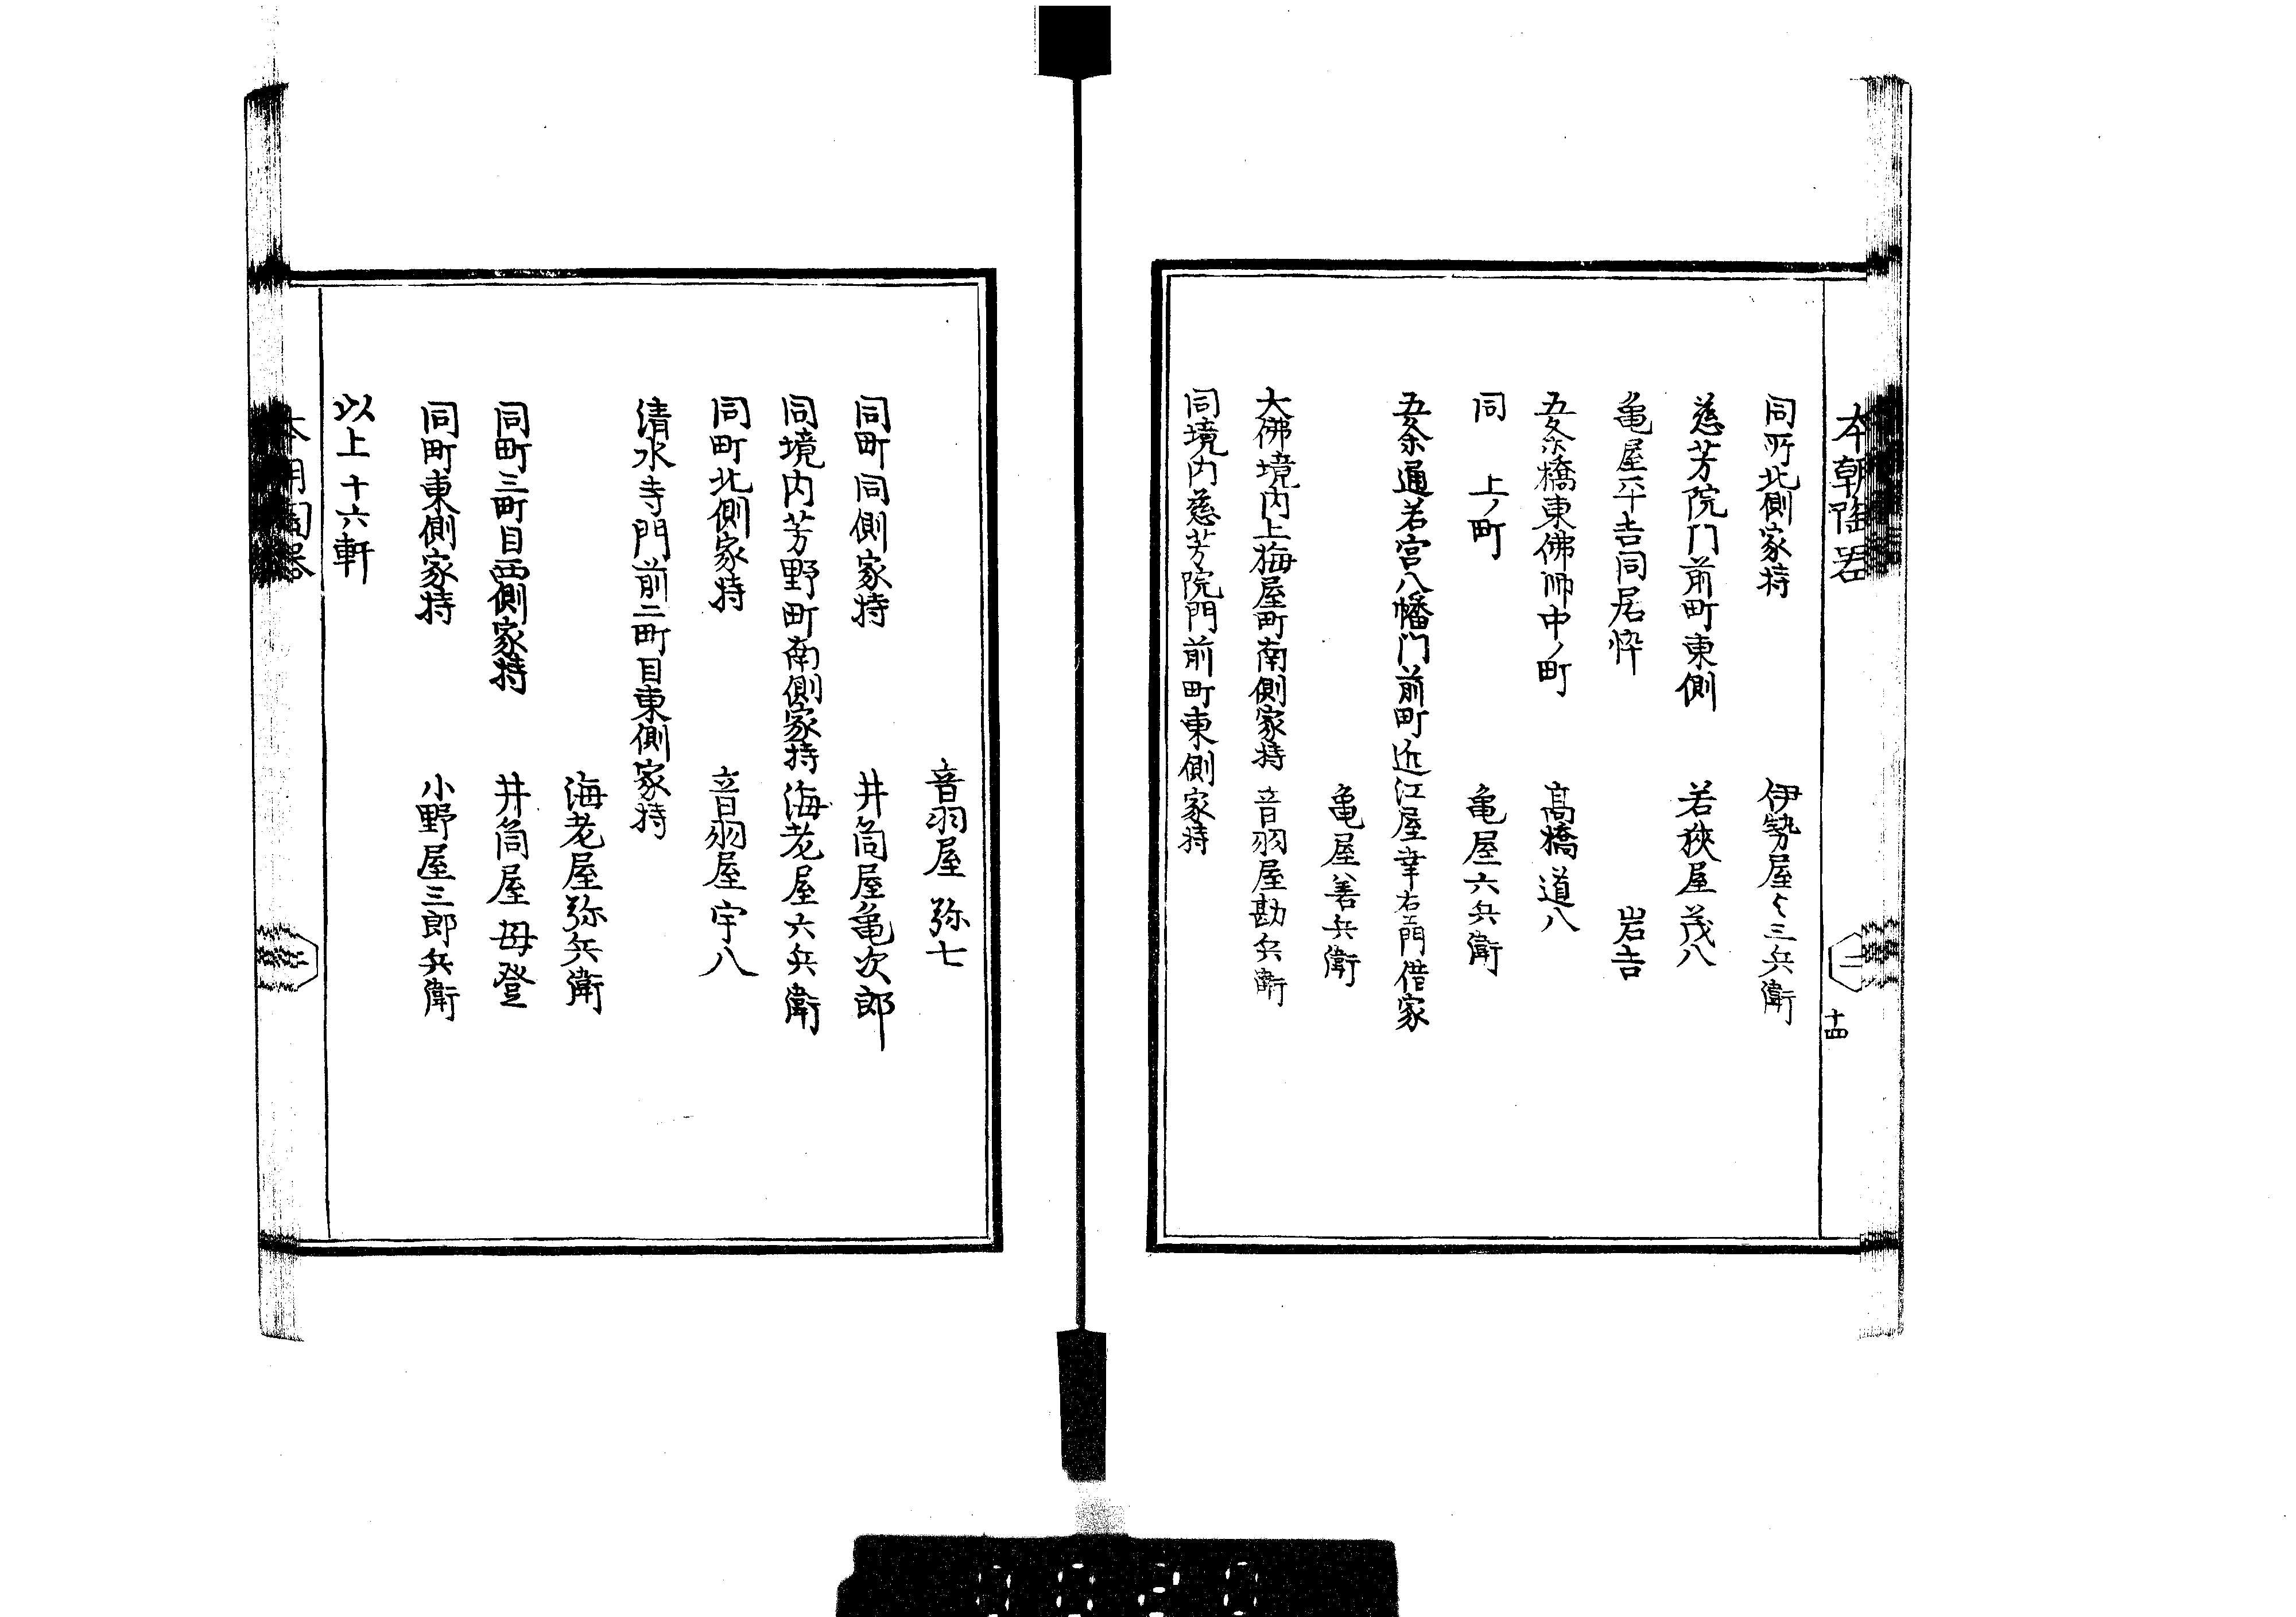 本朝陶器
十四
同所北側家持 伊勢屋与三兵衛
慈芳院門前町東側 若狭屋茂八
亀屋平吉同居悴 岩吉
五条橋東佛師中ノ町 高橋道八
同 上ノ町 亀屋六兵衛
五条通若宮八幡門前町近江屋幸右衛門借家
亀屋善兵衛
大佛境内上梅屋町南側家持 音羽屋勘兵衛
同境内慈芳院門前町東側家持
音羽屋弥七
同町同側家持 井筒屋亀次郎
同境内芳野町南側家持 海老屋六兵衛
同町北側家持 音羽屋宇八
清水寺門前二町目東側家持
海老屋弥兵衛
同町三町目西側家持 井筒屋毋登
同町東側家持 小野屋三郎兵衛
以上十六軒
本朝陶器